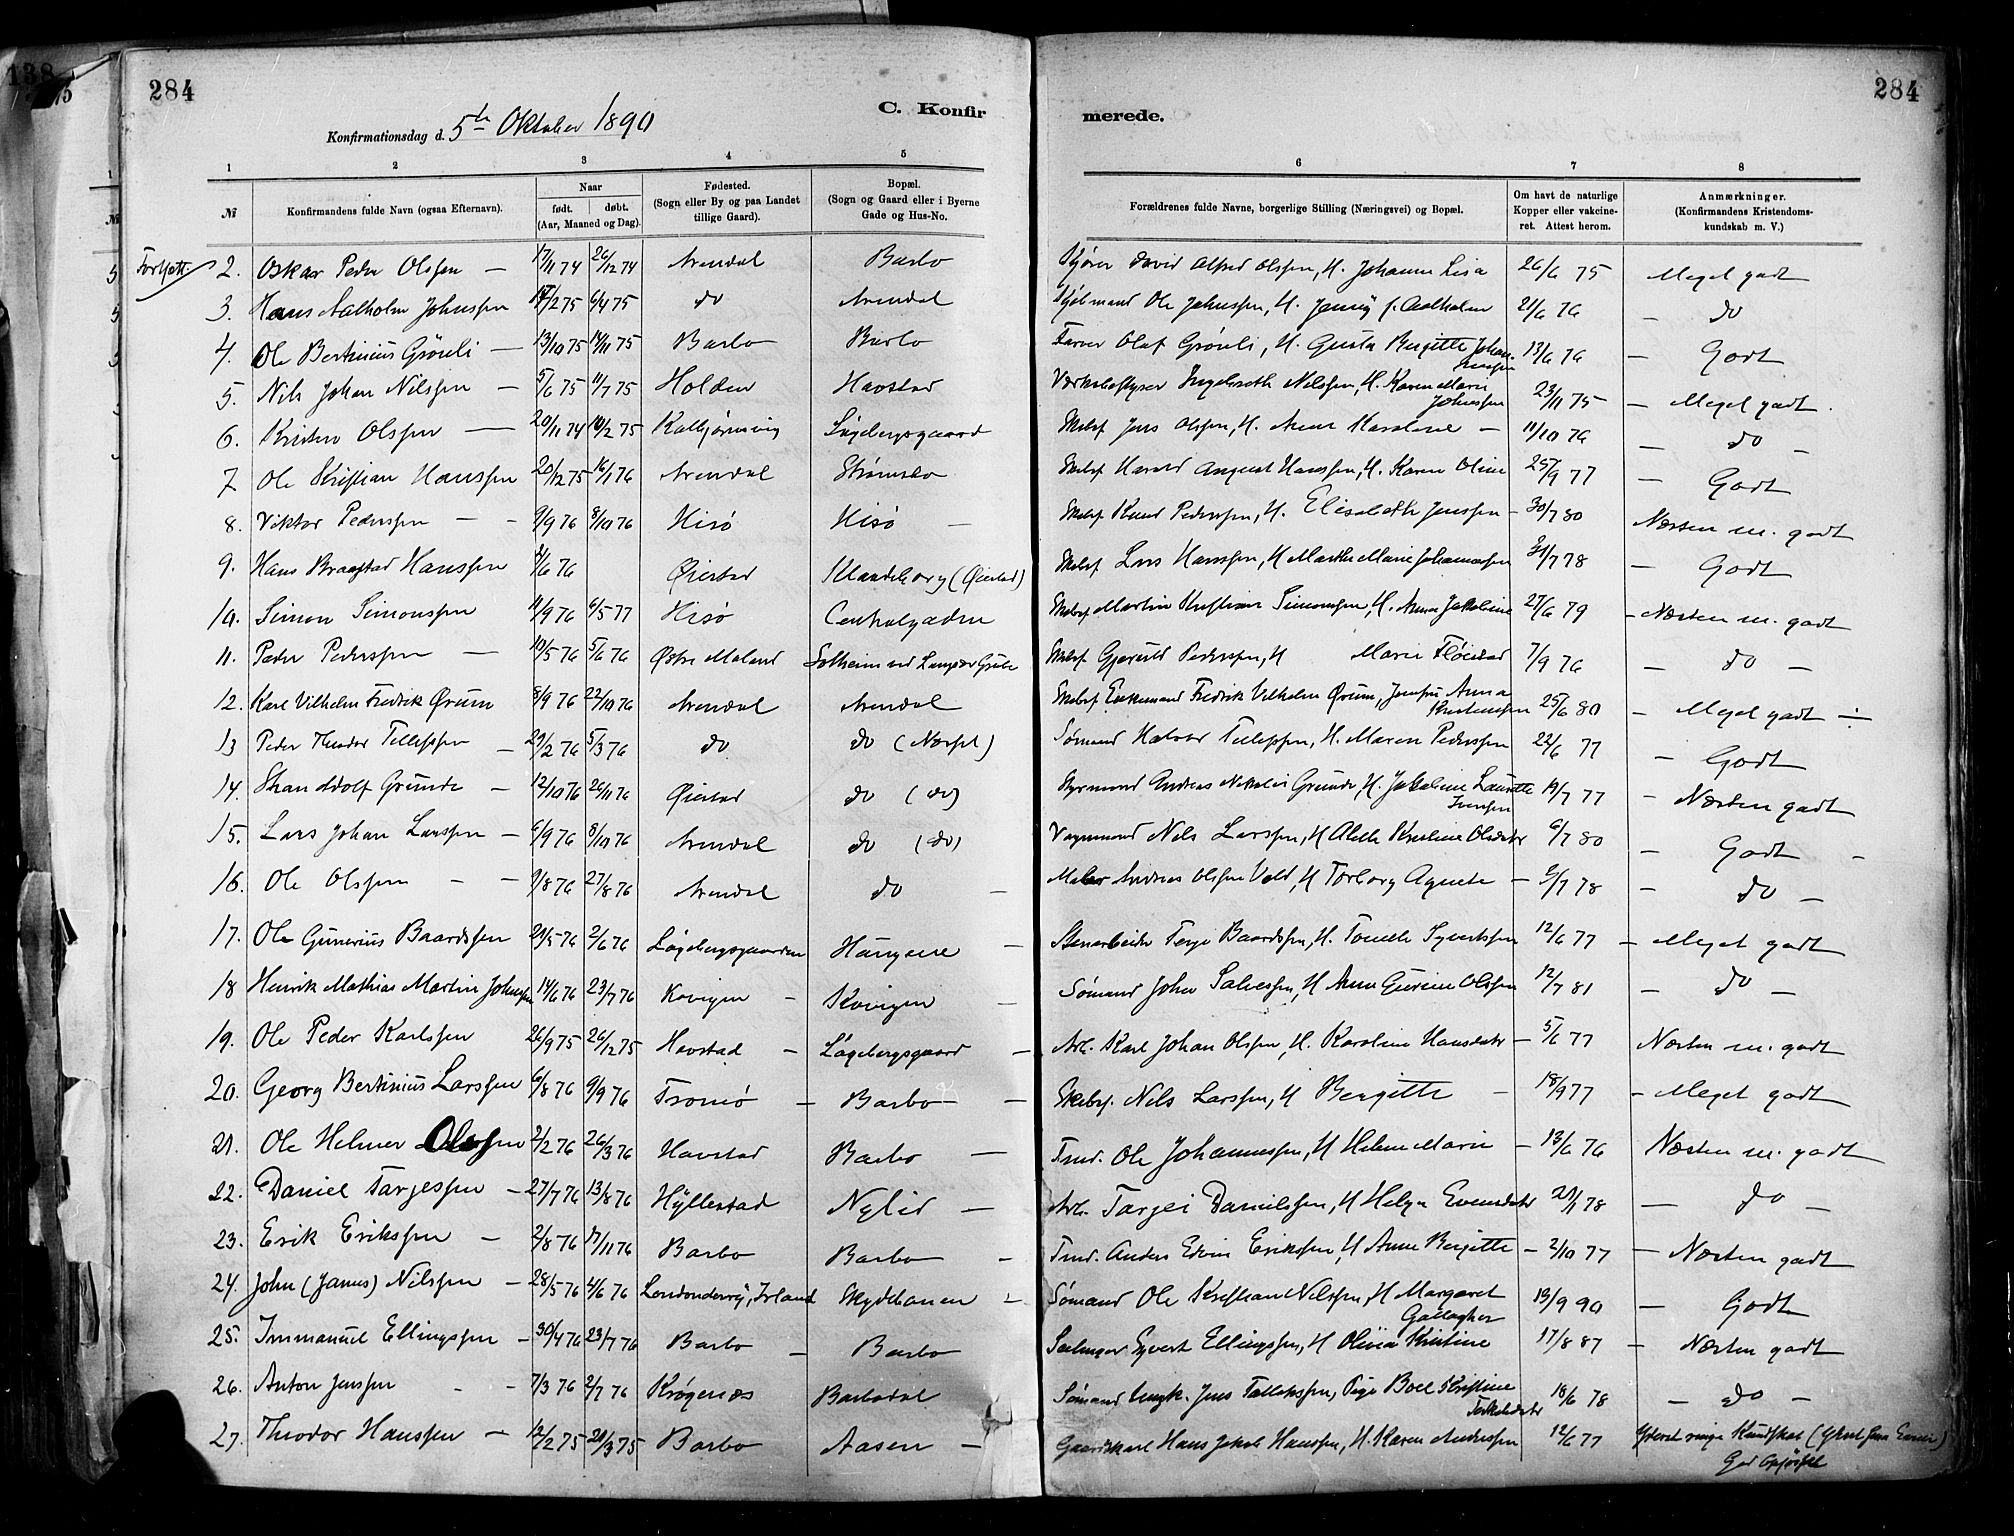 138
75
284
284
C. Konfir
merede.
Konfirmationsdag d. 5te Oktober 1890
1 2 3 4 5 6 7 8
№ Konfirmandens fulde Navn (ogsaa Efternavn). Naar født. døbt. (Aar, Maaned og Dag). Fødested. (Sogn eller By og paa Landet tillige Gaard). Bopæl. (Sogn og Gaard eller i Byerne Gade og Hus-No. Forældrenes fulde Navne, borgerlige Stilling (Næringsvei) og Bopæl. Om havt de naturlige Kopper eller vakcineret. Attest herom. Anmærkninger. (Konfirmandens Kristendomskundskab m. V.)
Fortsatt.
2. Oskar Peder Olssen — 17/11 74 26/12 74 Arendal Barbo David Alfred Olssen, H. Johanne Lisa 26/6 75 Meget godt
3. Hans Aalholm Johnssen /2 75 6/4 75 do Arendal Ole Johnssen, H. Jenny f. Aalholm 21/6 76 — do
4. Ole Bertinius Grönli — 13/10 75 14/11 75 Barbo Barbo Farver Olaf Grönli, H. Gusta Bergitte Johanssen 13/6 76 — Godt
5. Nils Johan Nilssen — 5/6 75 11/7 75 Holden Havstad Ingebreth Nilssen, H. Karen Marie Johnssen 23/11 75 — Meget godt.
6. Kristen Olssen — 20/11 74 14/2 75 Kolbjørnsvig Lögebergsgaard Skibsf. Jens Olssen, H. Anne Karoline — 11/10 76 — do —
7. Ole Kristian Hanssen 20/12 75 16/1 76 Arendal Strømsbo Skibsf. Harald August Hanssen, H. Karen Oline 25/9 77 — Godt
8. Viktor Pederssen — - 9/9 76 8/10 76 Hisö Hisö — Skibsf. Knud Pederssen, H. Elisabeth Jenssen — 30/7 80 Næsten m. godt
9. Hans Braastad Hanssen 2/6 76 Øiestad Klandeborg (Øiestad) Skibsf. Lars Hanssen, H Marthe Marie Johannessen 31/7 78 — Godt
10. Simon Simonssen 11/9 76 6/5 77 Hisö Centralgaden Skibsf. Martin Kristian Simonssen, H. Anne Jakobine 27/6 79 — Næsten m. godt
11. Peder Pederssen — 10/5 76 5/6 76 Østre Moland Solheim ved Langsæ Grube Skibsf. Gjeruld Pederssen, H Marie Fløistad 7/9 76 — do —
12. Karl Vilhelm Fredrik Ørum 8/9 76 22/10 76 Arendal Arendal Skibsf. Enkemand Fredrik Vilhelm Ørum, Jomfru Anna Kristenssen 25/6 80 — Meget godt —
13 Peder Theodor Tellefssen — 29/2 76 5/3 76 do do (Næset) Sømand Halvor Tellefssen, H. Maren Pederssen 22/6 77 — Godt
14. Adolf Grunde — 12/10 76 26/11 76 Øiestad do (do) Styrmand Andreas Nikolai Grunde, H. Jakobine Laurette Jenssen 19/7 77 — Næsten godt
15. Lars Johan Larssen — 6/9 76 8/10 76 Arendal do (do) Vognmand Nils Larssen, H Aleth Kristine Olsdatr 6/7 80 — Godt —
16. Ole Olssen — — 9/8 76 27/8 76 Arendal do — Maler Andreas Olssen Vold, H Torborg Agnete — 5/7 78 — do —
17. Ole Gunerius Baardssen 21/5 76 2/6 76 Lögebergsgaarden Haugene — Stenarbeider Terje Baardssen, H. Tomelle Syvertssen 12/6 77 — Meget godt
18 Henrik Mathias Martin Johnssen 14/6 76 23/7 76 Kovigen — Skovigen — Sømand John Salvessen, H Anne Gurine Olssen 12/7 81 — do —
19. Ole Peder Karlssen 26/9 75 26/12 75 Havstad — Lögebergsgaard — Arb. Karl Johan Olssen, H. Karoline Hansdatr — 5/6 77 Næsten m. godt
20. Georg Bertinius Larssen 6/8 76 9/9 76 Tromö — Barbo — Skibsf. Nils Larssen, H Bergitte — 18/9 77 — Meget godt
21. Ole Helmer Olssen 2/2 76 26/3 76 Havstad Barbo — Tmd. Ole Johannessen, H Helene Marie — 13/6 76 Næsten m. godt
22. Daniel Targessen — 27/7 76 13/8 76 Hyllestad Nylid — Arb. Targei Danielssen, H Helga Evensdatr 21/1 78 — do —
23. Erik Erikssen — 2/8 76 17/11 76 Barbo Barbo — Tmd. Anders Edvin Erikssen, H Anne Bergitte — 2/10 77 — Næsten godt
24. John (James) Nilssen — 28/5 76 4/6 76 Londonderry, Irland Myddbanen — Sømand Ole Kristian Nilssen, H Margaret Gallagher 13/9 90 — Godt
25. Immanuel Ellingssen — 30/4 76 23/7 76 Barbo — Barbo Syvert Ellingssen, H Olivia Kristine 17/8 87 — Næsten godt
26. Anton Jenssen - - 7/3 76 2/7 76 Krøgenæs Barbodal Sømand Ungk. Jens Tallakssen, Pige Boel Kristine Terkelsdatr 18/6 78 — do —
27. Theodor Hanssen — 12/2 75 21/3 75 Barbo Aasen — Gaardskarl Hans Jakob Hanssen, H. Karen Anderssen 12/6 77 Yderst ringe Kundskab God Opførsel